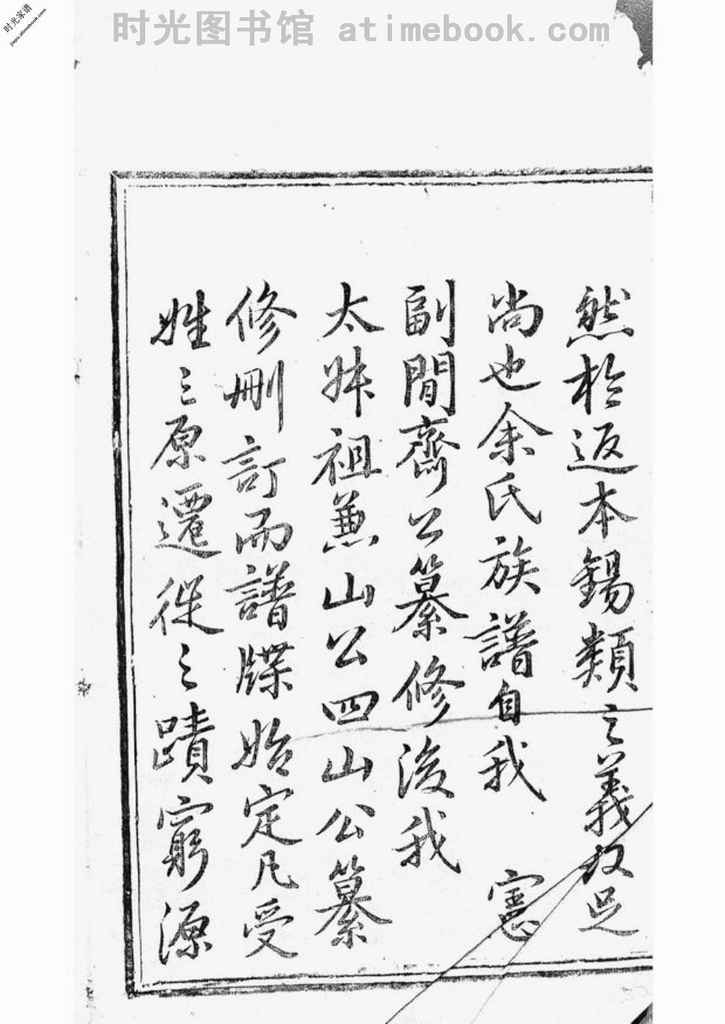 时光图书馆 atimebook.com
时光家谱
然於返本錫類之義故足
尚也余氏族譜自我 憲
副閒齋公纂修後我
太叔祖兼山公四山公纂
修刪訂而譜牒始定凡受
姓之原遷徙之蹟窮源